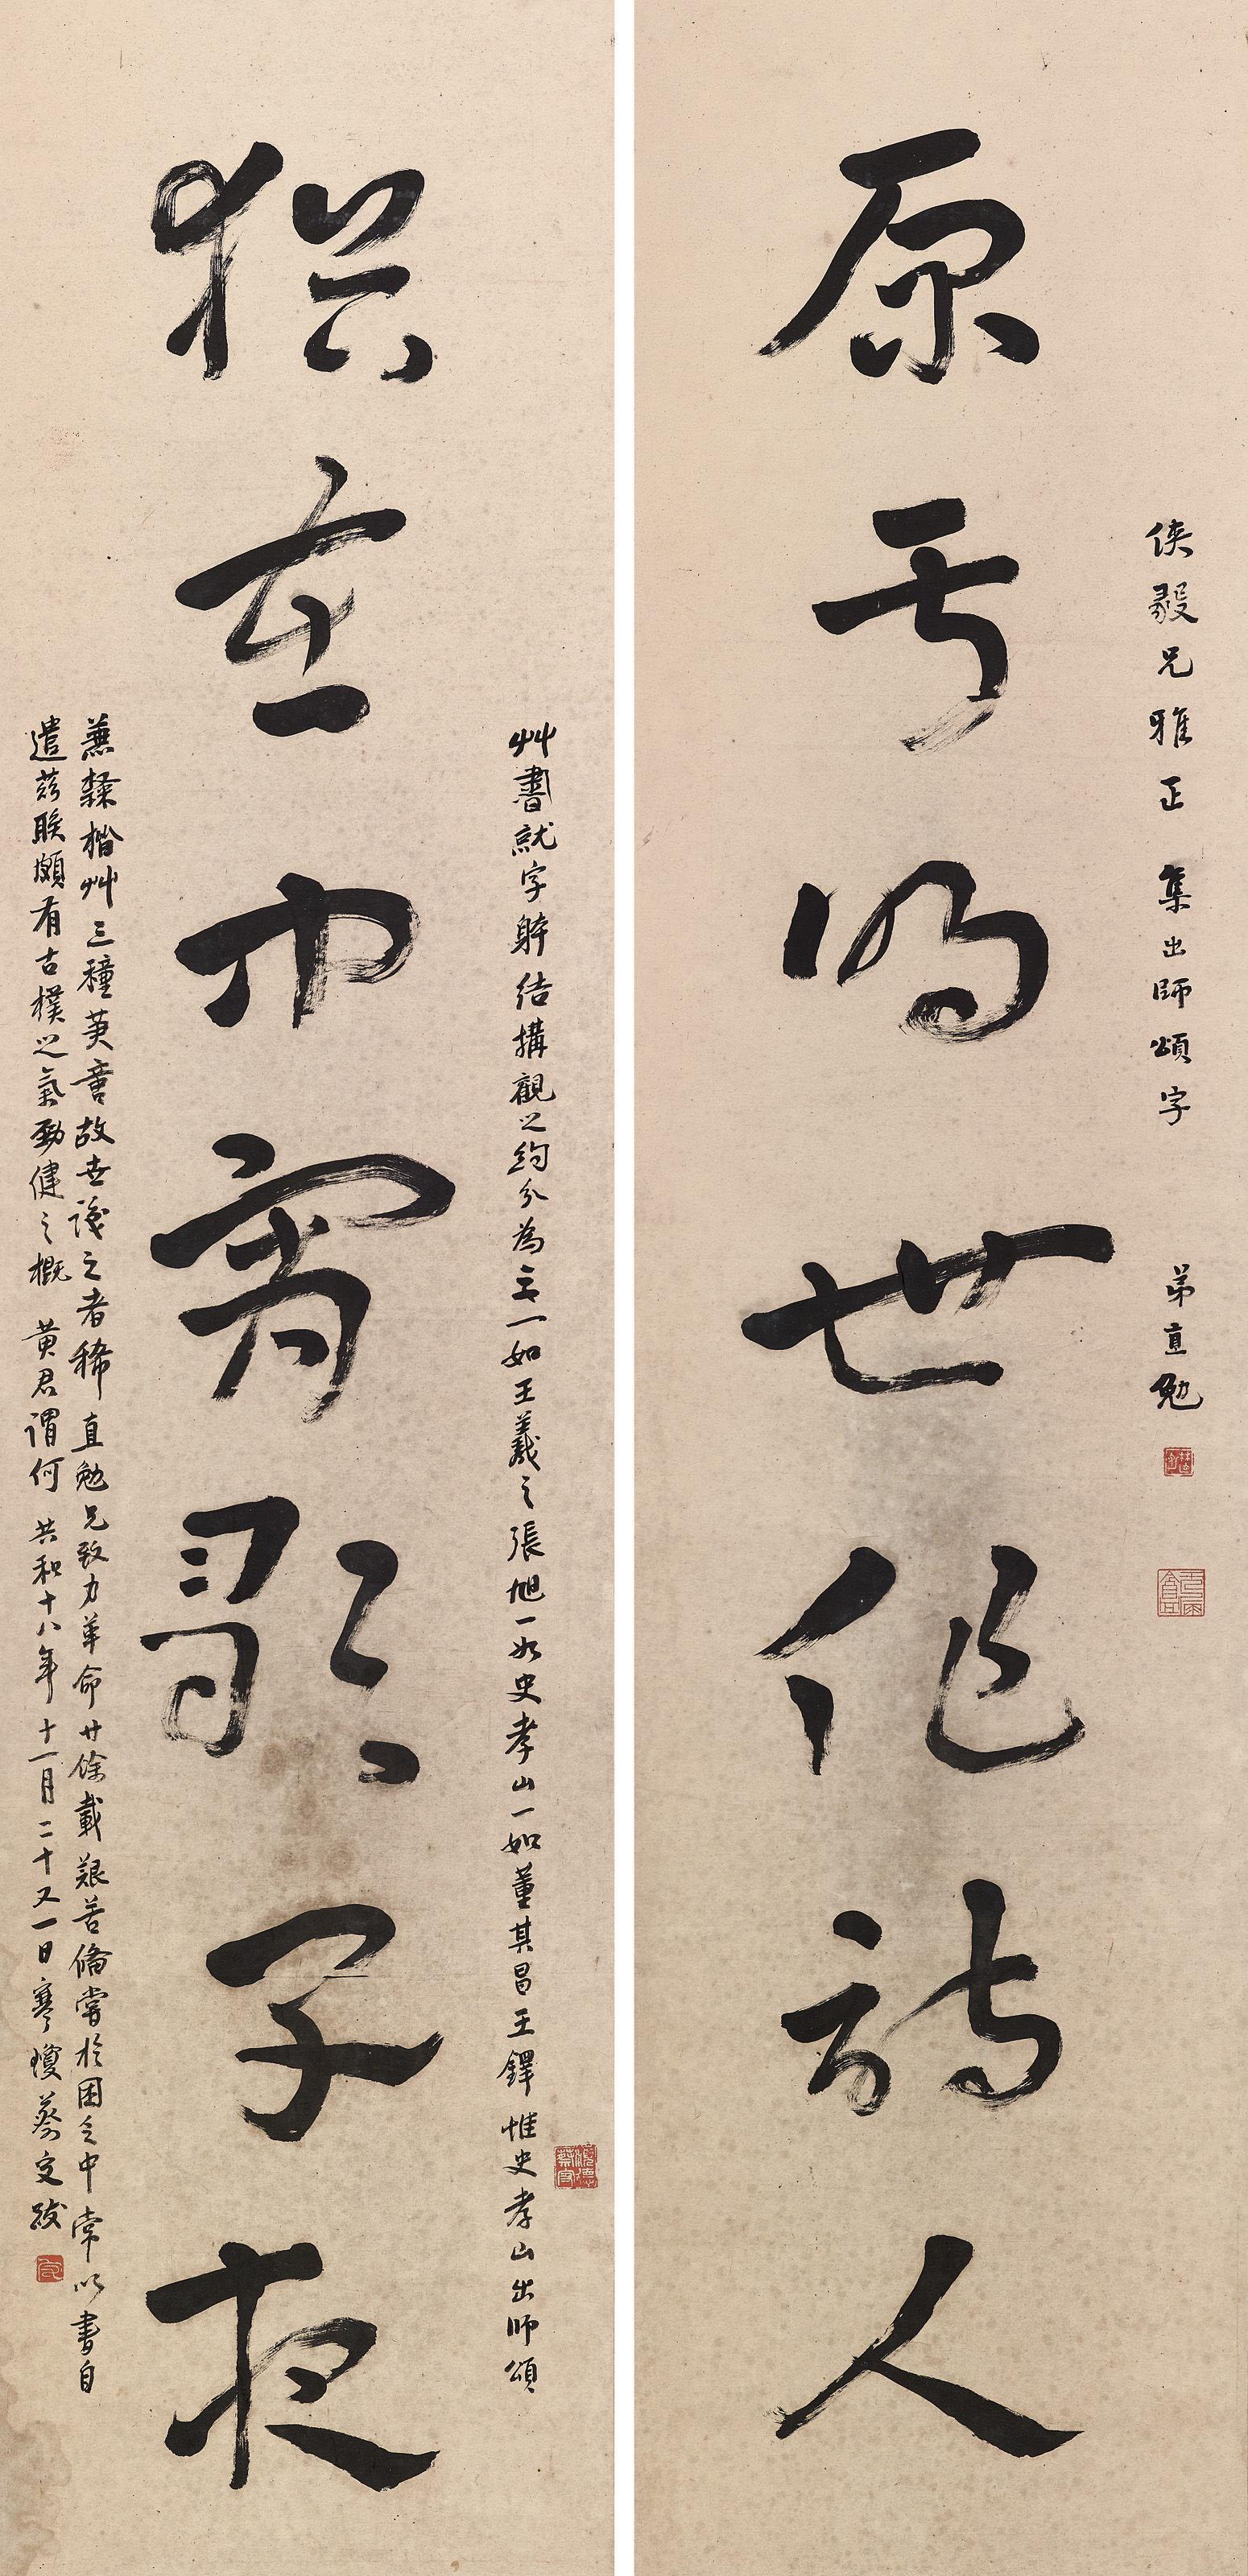 俠毅兄雅正 集出師頌字 弟直勉
原于明世作詩人
艸書就字躰結搆觀之約分為三一如王羲之張旭一如史孝山一如董其昌王鐸惟史孝山出師頌
在巾歌子夜
兼隸楷艸三種意故世識之者稀 直勉兄致力革命廿餘載艱苦備嘗於困乏中常以書自
遣茲聯頗有古樸之氣勁健之概 黃君謂何 共和十八年十一月二十又一日寒瓊蔡守跋